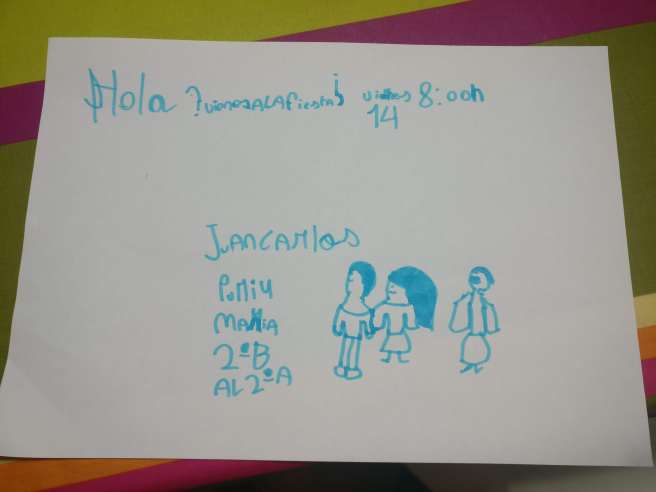 Hola ?vienesALAfiesta¿ viernes 8:00h
14
JUANCARlos
MARIA
2ºB
AL 2ºA